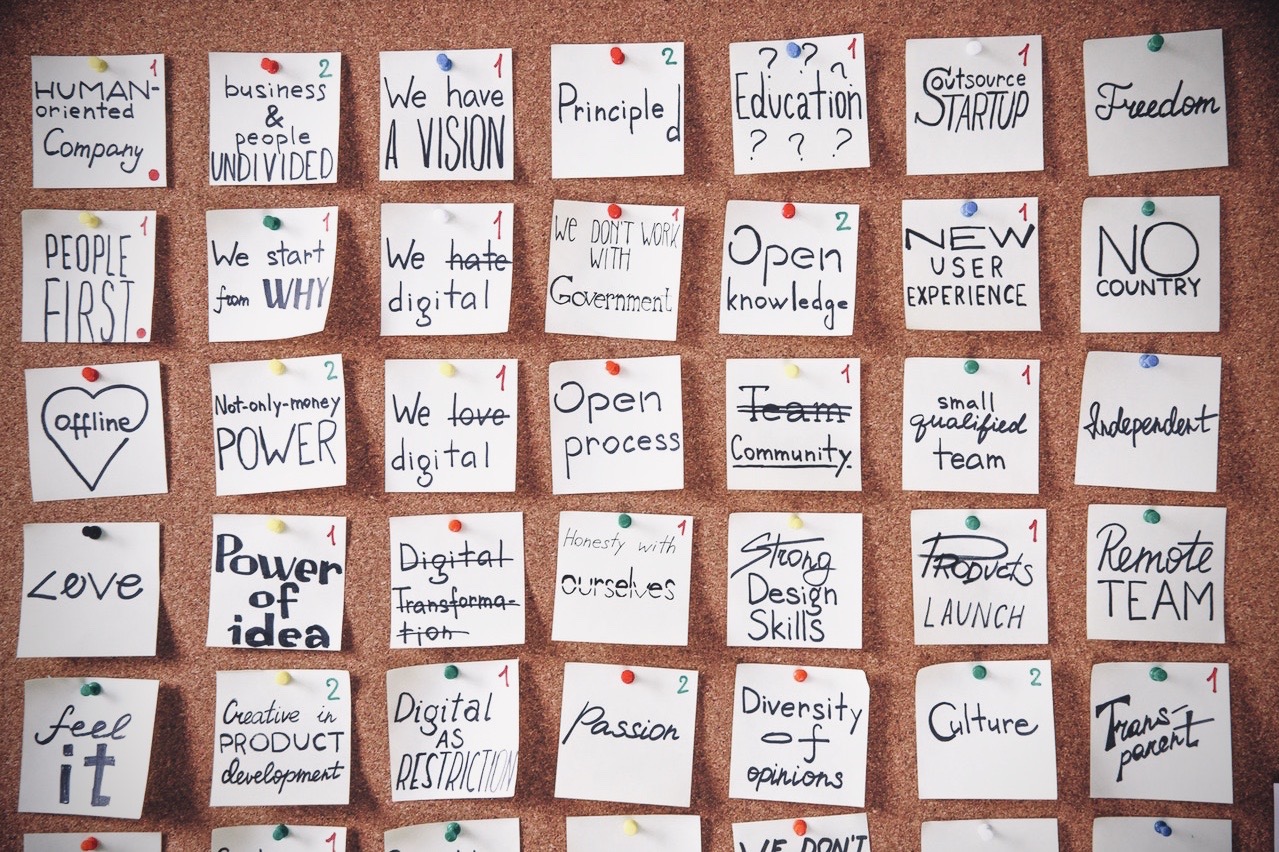 1
HUMAN-
oriented
Company
2
business
&
people
UNDIVIDED
1
We have
A VISION
2
Principled
1
? ? ?
Education
? ? ?
1
Outsource
STARTUP
Freedom
1
PEOPLE
FIRST
1
We start
from WHY
1
We hate
digital
1
We DON'T WORK
WITH
Government
2
Open
knowledge
1
NEW
USER
EXPERIENCE
NO
COUNTRY
offline
2
Not-only-money
POWER
1
We love
digital
Open
process
1
Team
Community
1
small
qualified
team
Independent
Love
1
Power
of
idea
Digital
Transforma-
tion
1
Honesty with
ourselves
Strong
Design
Skills
1
Products
LAUNCH
Remote
TEAM
feel
it
2
Creative in
PRODUCT
development
1
Digital
AS
RESTRICTION
2
Passion
Diversity
of
opinions
2
Culture
1
Trans-
parent
1
WE DON'T